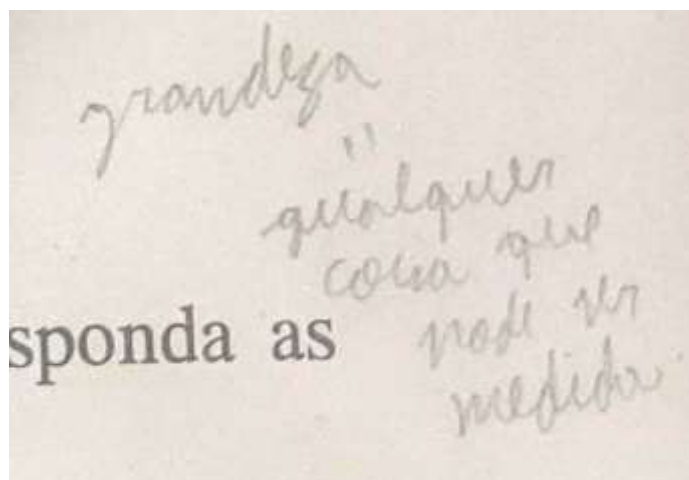 grandeza
"
qualquer
coisa que
pode ser
medida.
sponda as